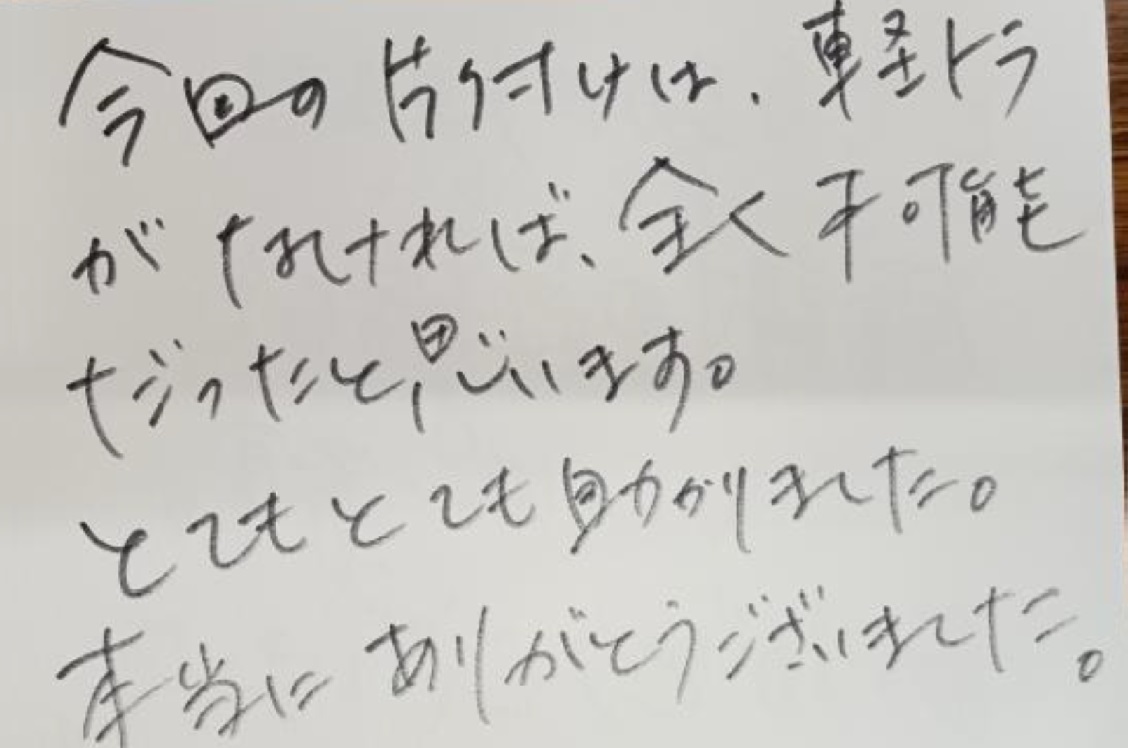 今回の片付けは、軽トラ
がなければ、全く不可能
だったと思います。
とてもとても助かりました。
本当にありがとうございました。